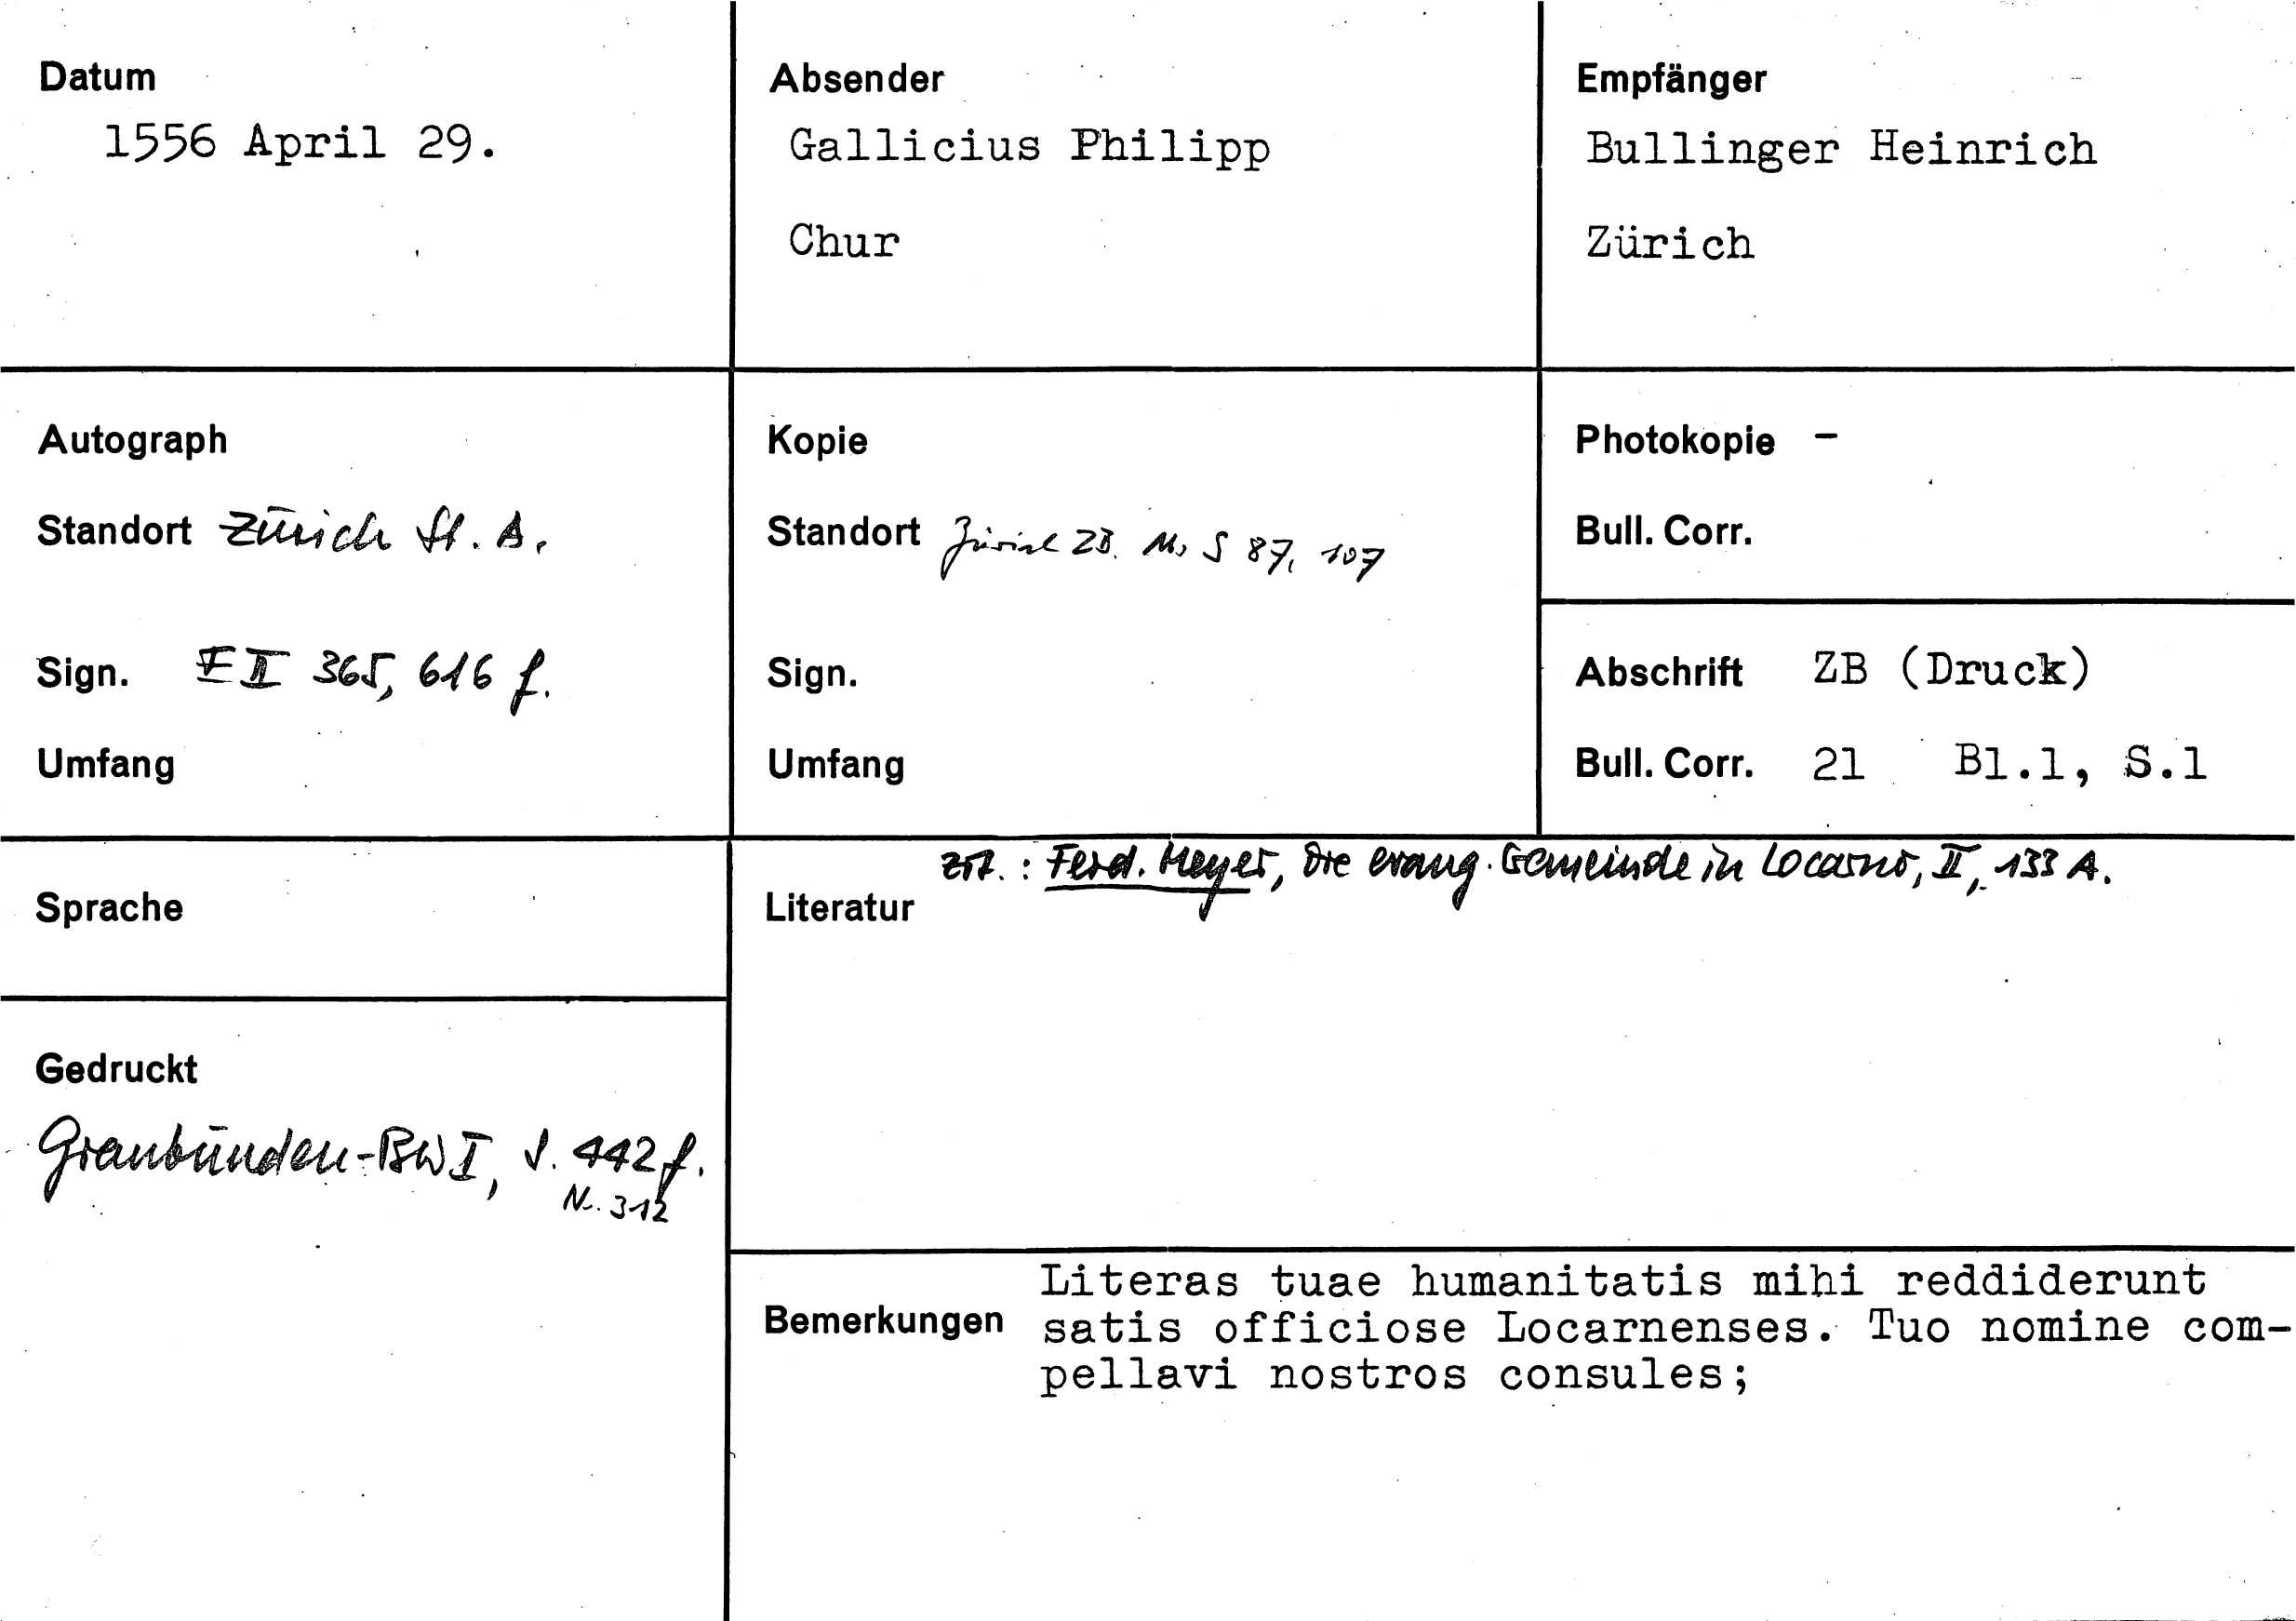 Datum
1556 April 29.
Absender
Gallicius Philipp
Chur
Empfänger
Bullinger Heinrich
Zürich
Autograph
Standort Zürich St. A.
Sign. E II 365, 616 f.
Umfang
Kopie
Standort Zürich ZB. Ms S 87, 107
Sign.
Umfang
Photokopie -
Bull. Corr.
Abschrift ZB (Druck)
Bull. Corr. 21 Bl.1, S.1
Sprache
Gedruckt
Graubünden-BW I, S. 442 f.
Nr. 312
zit.: Ferd. Meyer, Die evang. Gemeinde in Locarno, II, 133 A.
Literatur
Bemerkungen
Literas tuae humanitatis mihi reddiderunt
satis officiose Locarnenses. Tuo nomine com-
pellavi nostros consules;